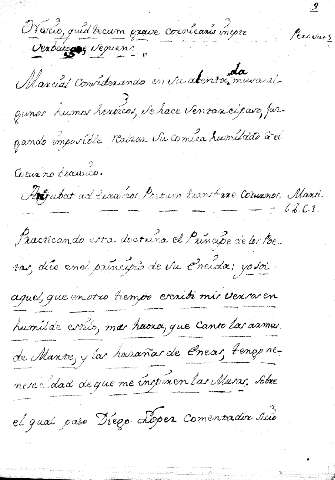 2
O Nescio, quid tecum grave cornicaris inepte
Verbu sequens Persius, 5
Marcial Considerando en Su atenta da musa al-
gunos humos heroicos, se hace Versar el paso, juz-
gando imposible Su Comica humildad a el
Coturno tragico.
An jubat ad tragicos Pœtum transferre Coturnos. Marci-
l. 8. C. 3.
Practicando esta doctrina el Principe de los Poe-
tas, dice en el principio de Su Eneida: yo soi
aquel, que en otro tiempo escribi mis versos en
humilde estilo, mas haora, que Canto las armas
de Marte, y las hazañas de Eneas, tengo ne-
nesesidad de que me inspiren las Musas, sobre
el qual paso Diego Lopez Comentador